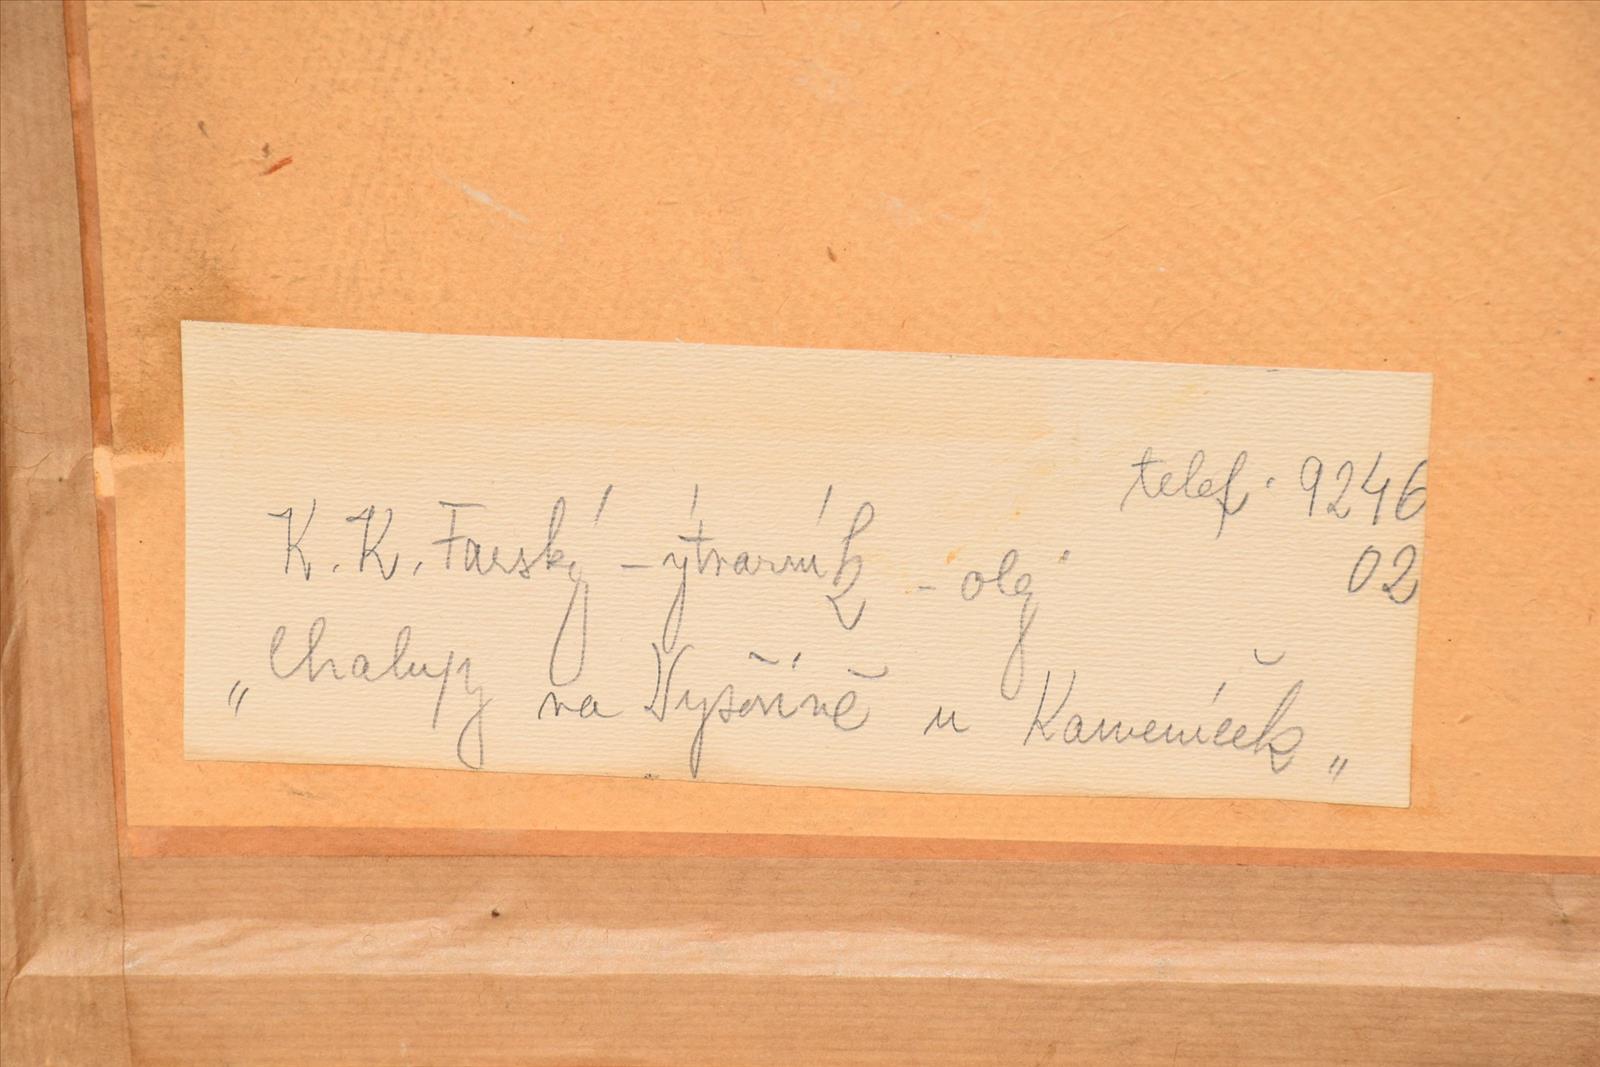 telef. 9246
02
K. K. Farský - ýtvarník - olej
„Chalupy na Vysočině u Kameníček„